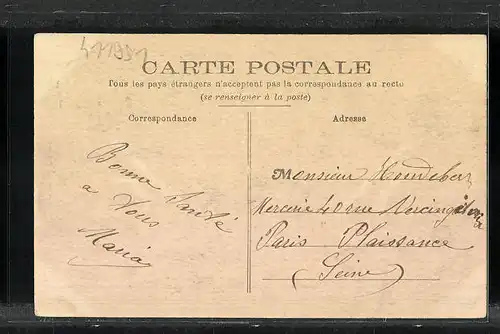 41931
CARTE POSTALE
Tous les pays étrangers n'acceptent pas la correspondance au recto
(se renseigner à la poste)
Correspondance
Bonne Santé
a Vous
Maria
Adresse
Monsieur
Mercerie 40 rue Vercingétorix
Paris Plaissance
(Seine)